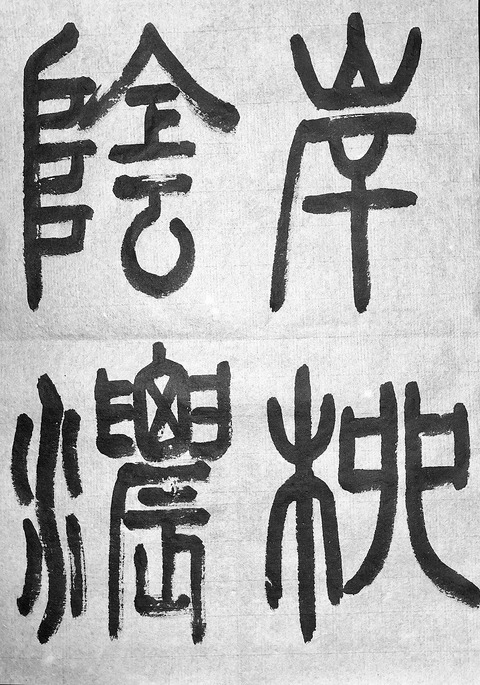 岸柳
陰濃